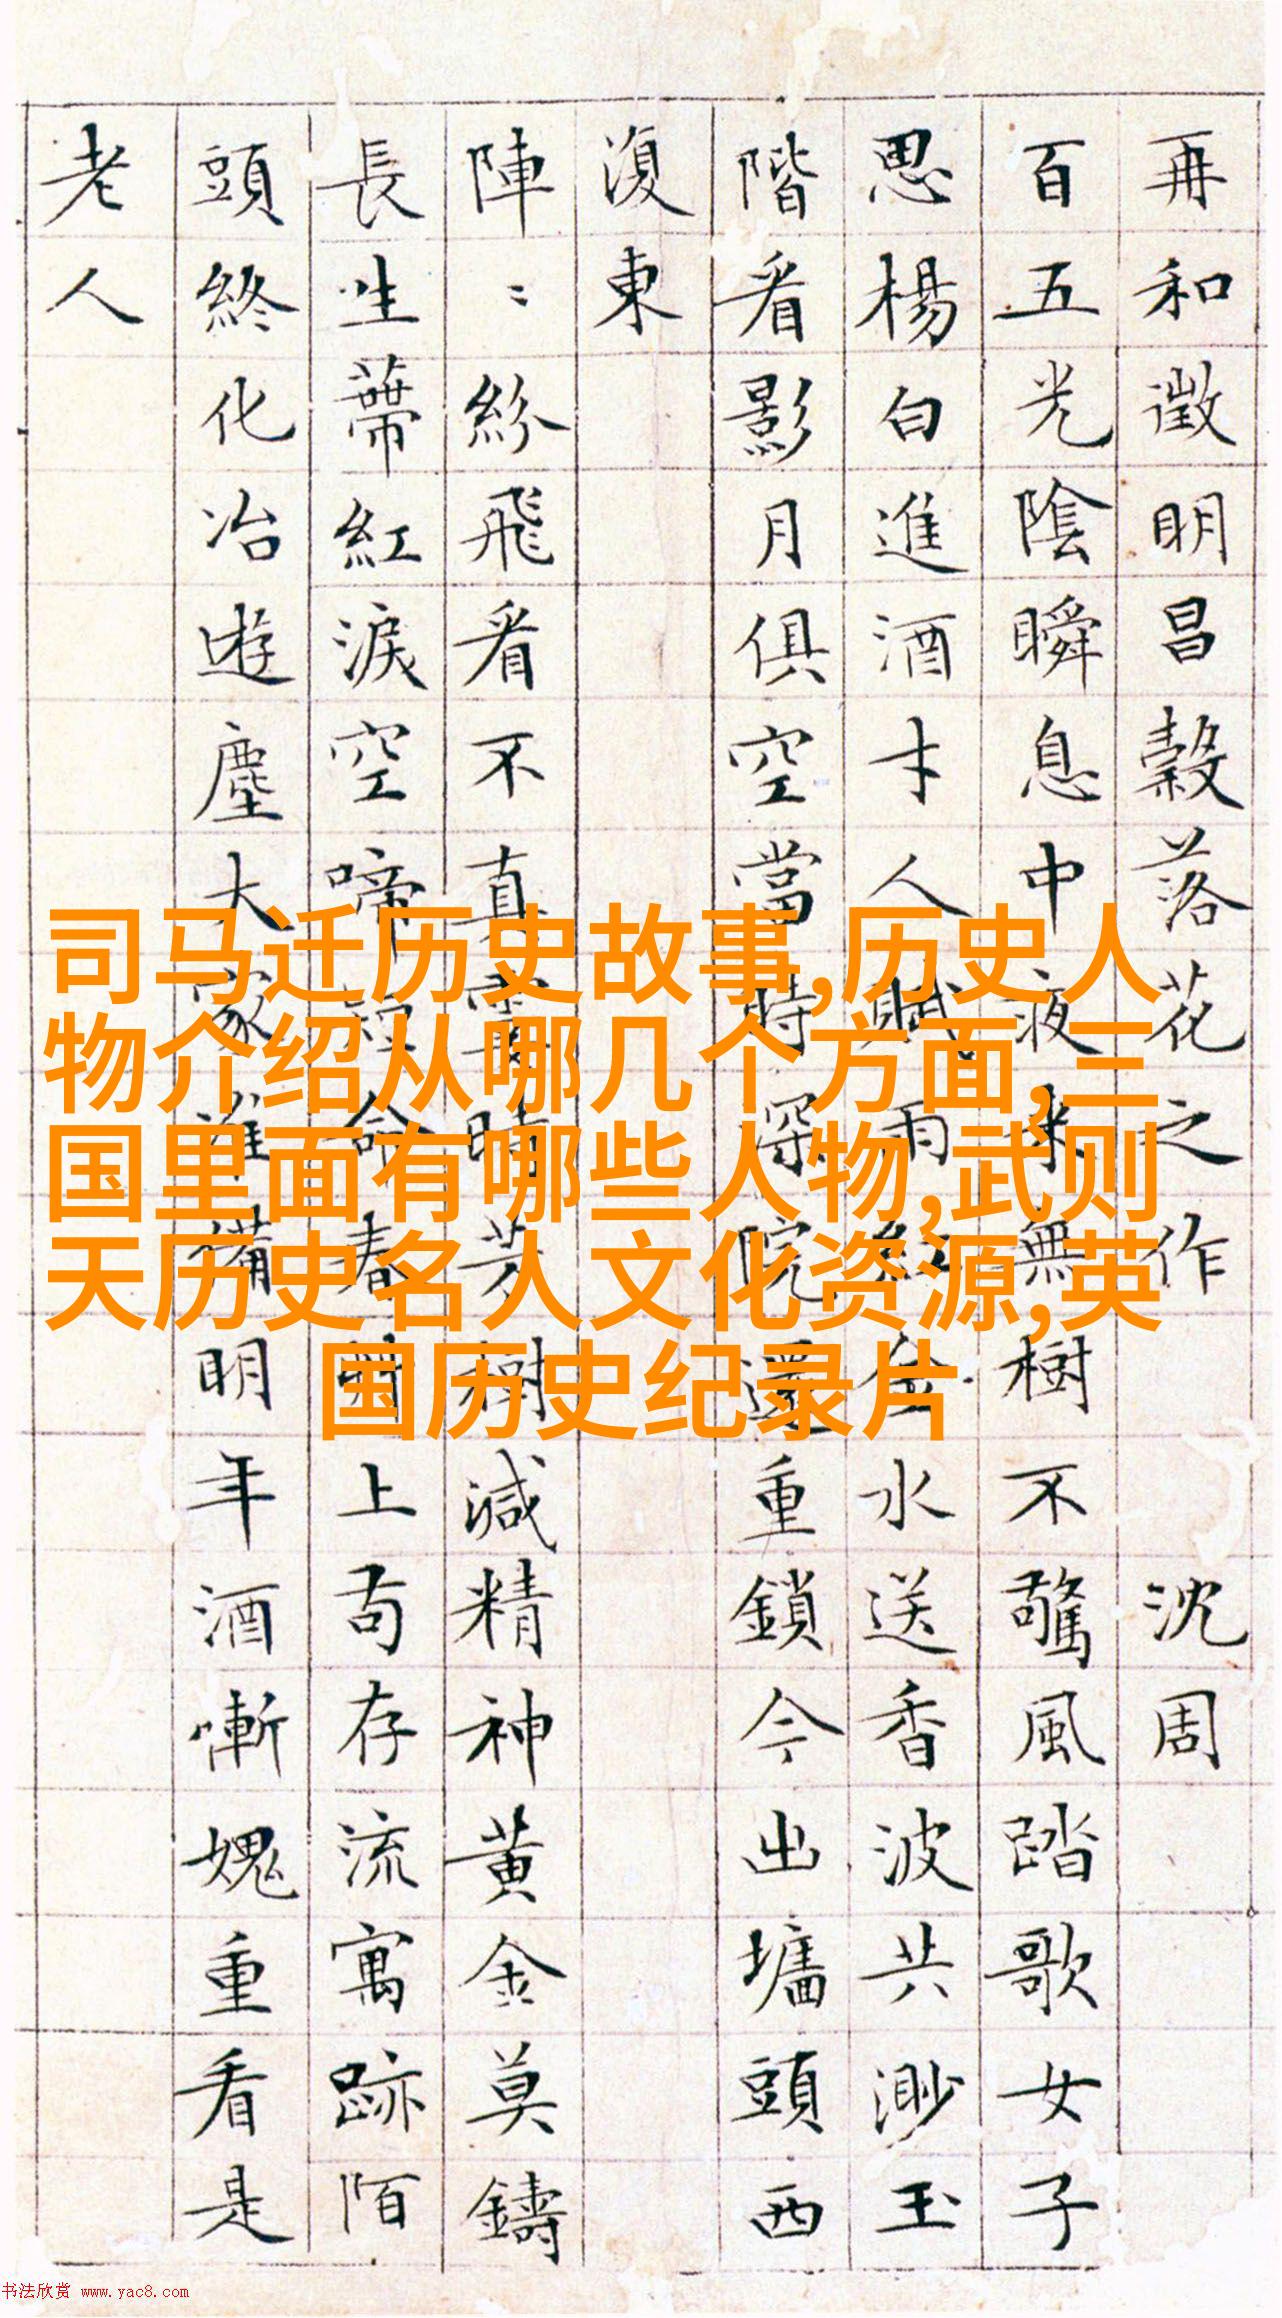 再和徵明昌穀落花之作 沈周
百五光陰瞬息中夜來無樹不驚風踏歌女子
思楊白進酒才人賦雨紅金水送香波共渺玉
階看影月俱空當時深院還重鎖今出墻頭西
復東
陣〻紛飛看不真霎時芳樹減精神黃金莫鑄
長生蔕紅淚空啼短命春艸上苟存流寓跡陌
頭終化冶遊塵大家準備明年酒慚媿重看是
老人
司马迁历史故事,历史人
物介绍从哪几个方面,三
国里面有哪些人物,武则
天历史名人文化资源,英
国历史纪录片
书法欣赏 www.yac8.com